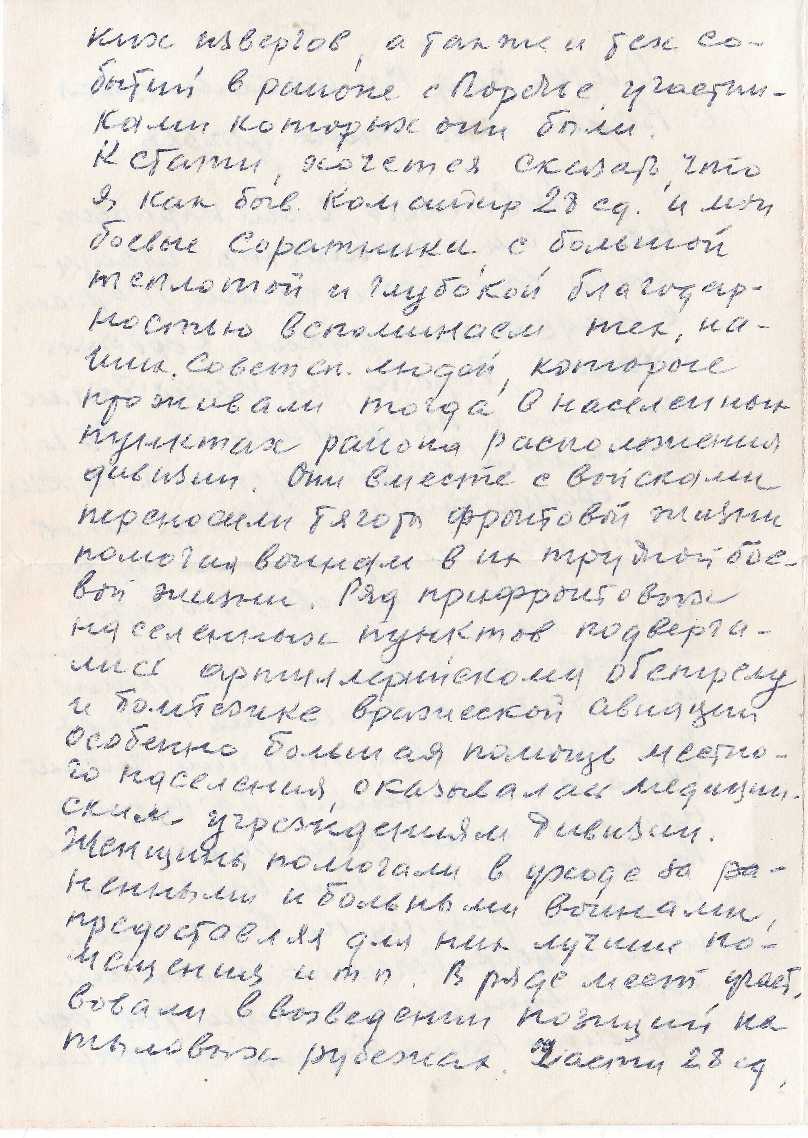 ких извергов, а также и тех со-
бытий в районе с Поречье, участни-
ками которых они были.
Кстати, хочется сказать, что
я, как быв. командир 28 сд. и мои
боевые соратники, с большой
теплотой и глубокой благодар-
ностью вспоминаем тех, на-
ших советск. людей, которые
проживали тогда в населенных
пунктах района расположения
дивизии. Они вместе с войсками
переносили тяготы фронтовой жизни
помогая воинам в их трудной бое-
вой жизни. Ряд прифронтовых
населенных пунктов подверга-
лись артиллерийскому обстрелу
и бомбежке вражеской авиации
Особенно большая помощь местно-
го населения, оказывалась медицин-
ским учреждениям дивизии.
Женщины помогали в уходе за ра-
ненными и больными воинами,
предоставляя для них лучшие по-
мещения и т п. В ряде мест участ.
вовали в возведении позиций на
тыловых рубежах. Части 28 сд,